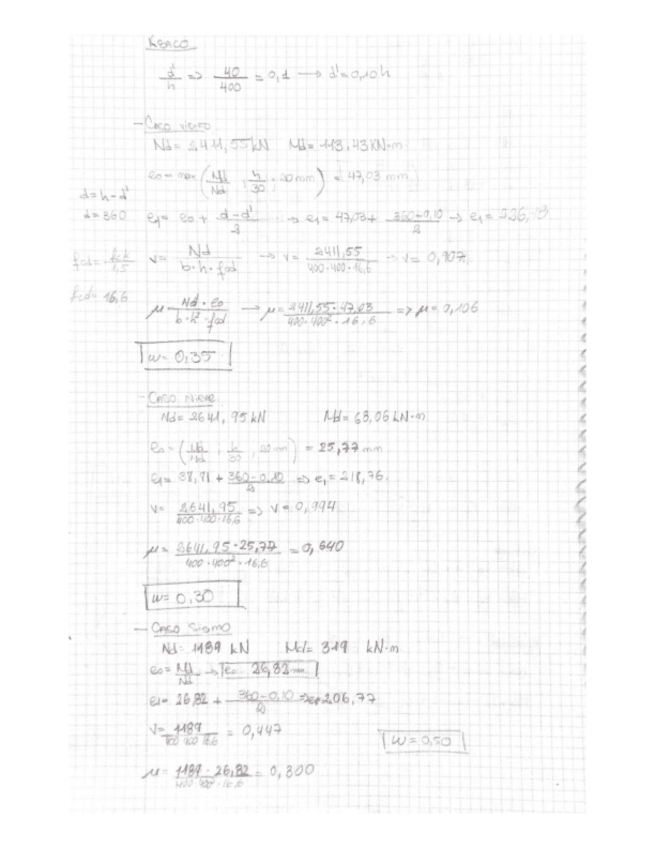 ABACO
d'/h => 40/400 = 0,1 → d' = 0,10h
- CASO VIENTO
Nd = 2411,55 kN Md = 113,43 KN·m
e0 = max (Md/Nd, h/30, 20 mm) = 47,03 mm
d = h - d'
d = 360
e1 = e0 + d-d'/2 => e1 = 47,03 + 360-0,10/2 → e1 = 226,
fcd = fck/1,5
V = Nd/b·h·fcd → V = 2411,55/400·400·16,6 → V = 0,907
fcd = 16,6
μ = Nd·e0/b·h²·fcd → μ = 2411,55·47,03/400·400²·16,6 => μ = 0,106
w = 0,35
- CASO NIEVE
Nd = 2641,95 kN Md = 68,06 kN·m
e0 = (Md/Nd, h/30, 20 mm) = 25,77 mm
e1 = 38,81 + 360-0,10/2 => e1 = 218,76
V = 2641,95/400·400·16,6 => V = 0,994
μ = 2641,95·25,77/400·400²·16,6 = 0,640
w = 0,30
- CASO SISMO
Nd = 1189 kN Md = 319 kN·m
e0 = Md/Nd → e0 = 26,82 mm
e1 = 26,82 + 360-0,10/2 => e1 = 206,77
V = 1189/400·400·16,6 = 0,447
w = 0,50
μ = 1189·26,82/400·400²·16,6 = 0,300